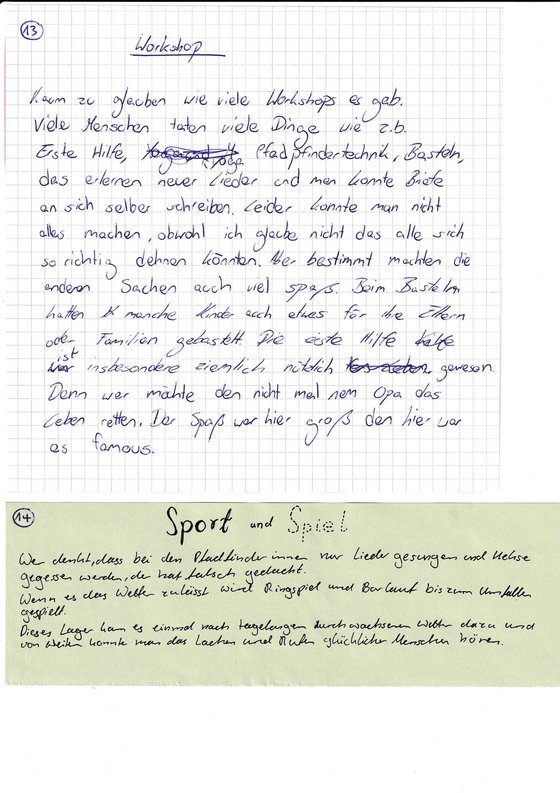 13
Workshop
Kaum zu glauben wie viele Workshops es gab.
Viele Menschen taten viele Dinge wie z.b.
Erste Hilfe, Yoga Pfadpfindertechnik, Basteln,
das erlernen neuer Lieder und man konnte Briefe
an sich selber schreiben. Leider konnte man nicht
alles machen, obwohl ich glaube nicht das alle sich
so richtig dehnen könnten. Aber bestimmt machten die
anderen Sachen auch viel spaß. Beim Basteln
hatten manche Kinder auch etwas für ihre Eltern
oder Familien gebastelt. Die erste Hilfe
ist insbesondere ziemlich nützlich gewesen.
Denn wer möchte den nicht mal nem Opa das
Leben retten. Der Spaß war hier groß den hier war
es famous.
14
Sport und Spiel
Wer denkt, dass bei den Pfadfinder innen nur Lieder gesungen und Kekse
gegessen werden, der hat falsch gedacht.
Wenn es das Wetter zulässt wird Ringspiel und Barlauf bis zum Umfallen
gespielt.
Dieses Lager kam es einmal nach tagelangem durchwachsenen Wetter dazu und
von weiten konnte man das Lachen und Rufen glücklicher Menschen hören.